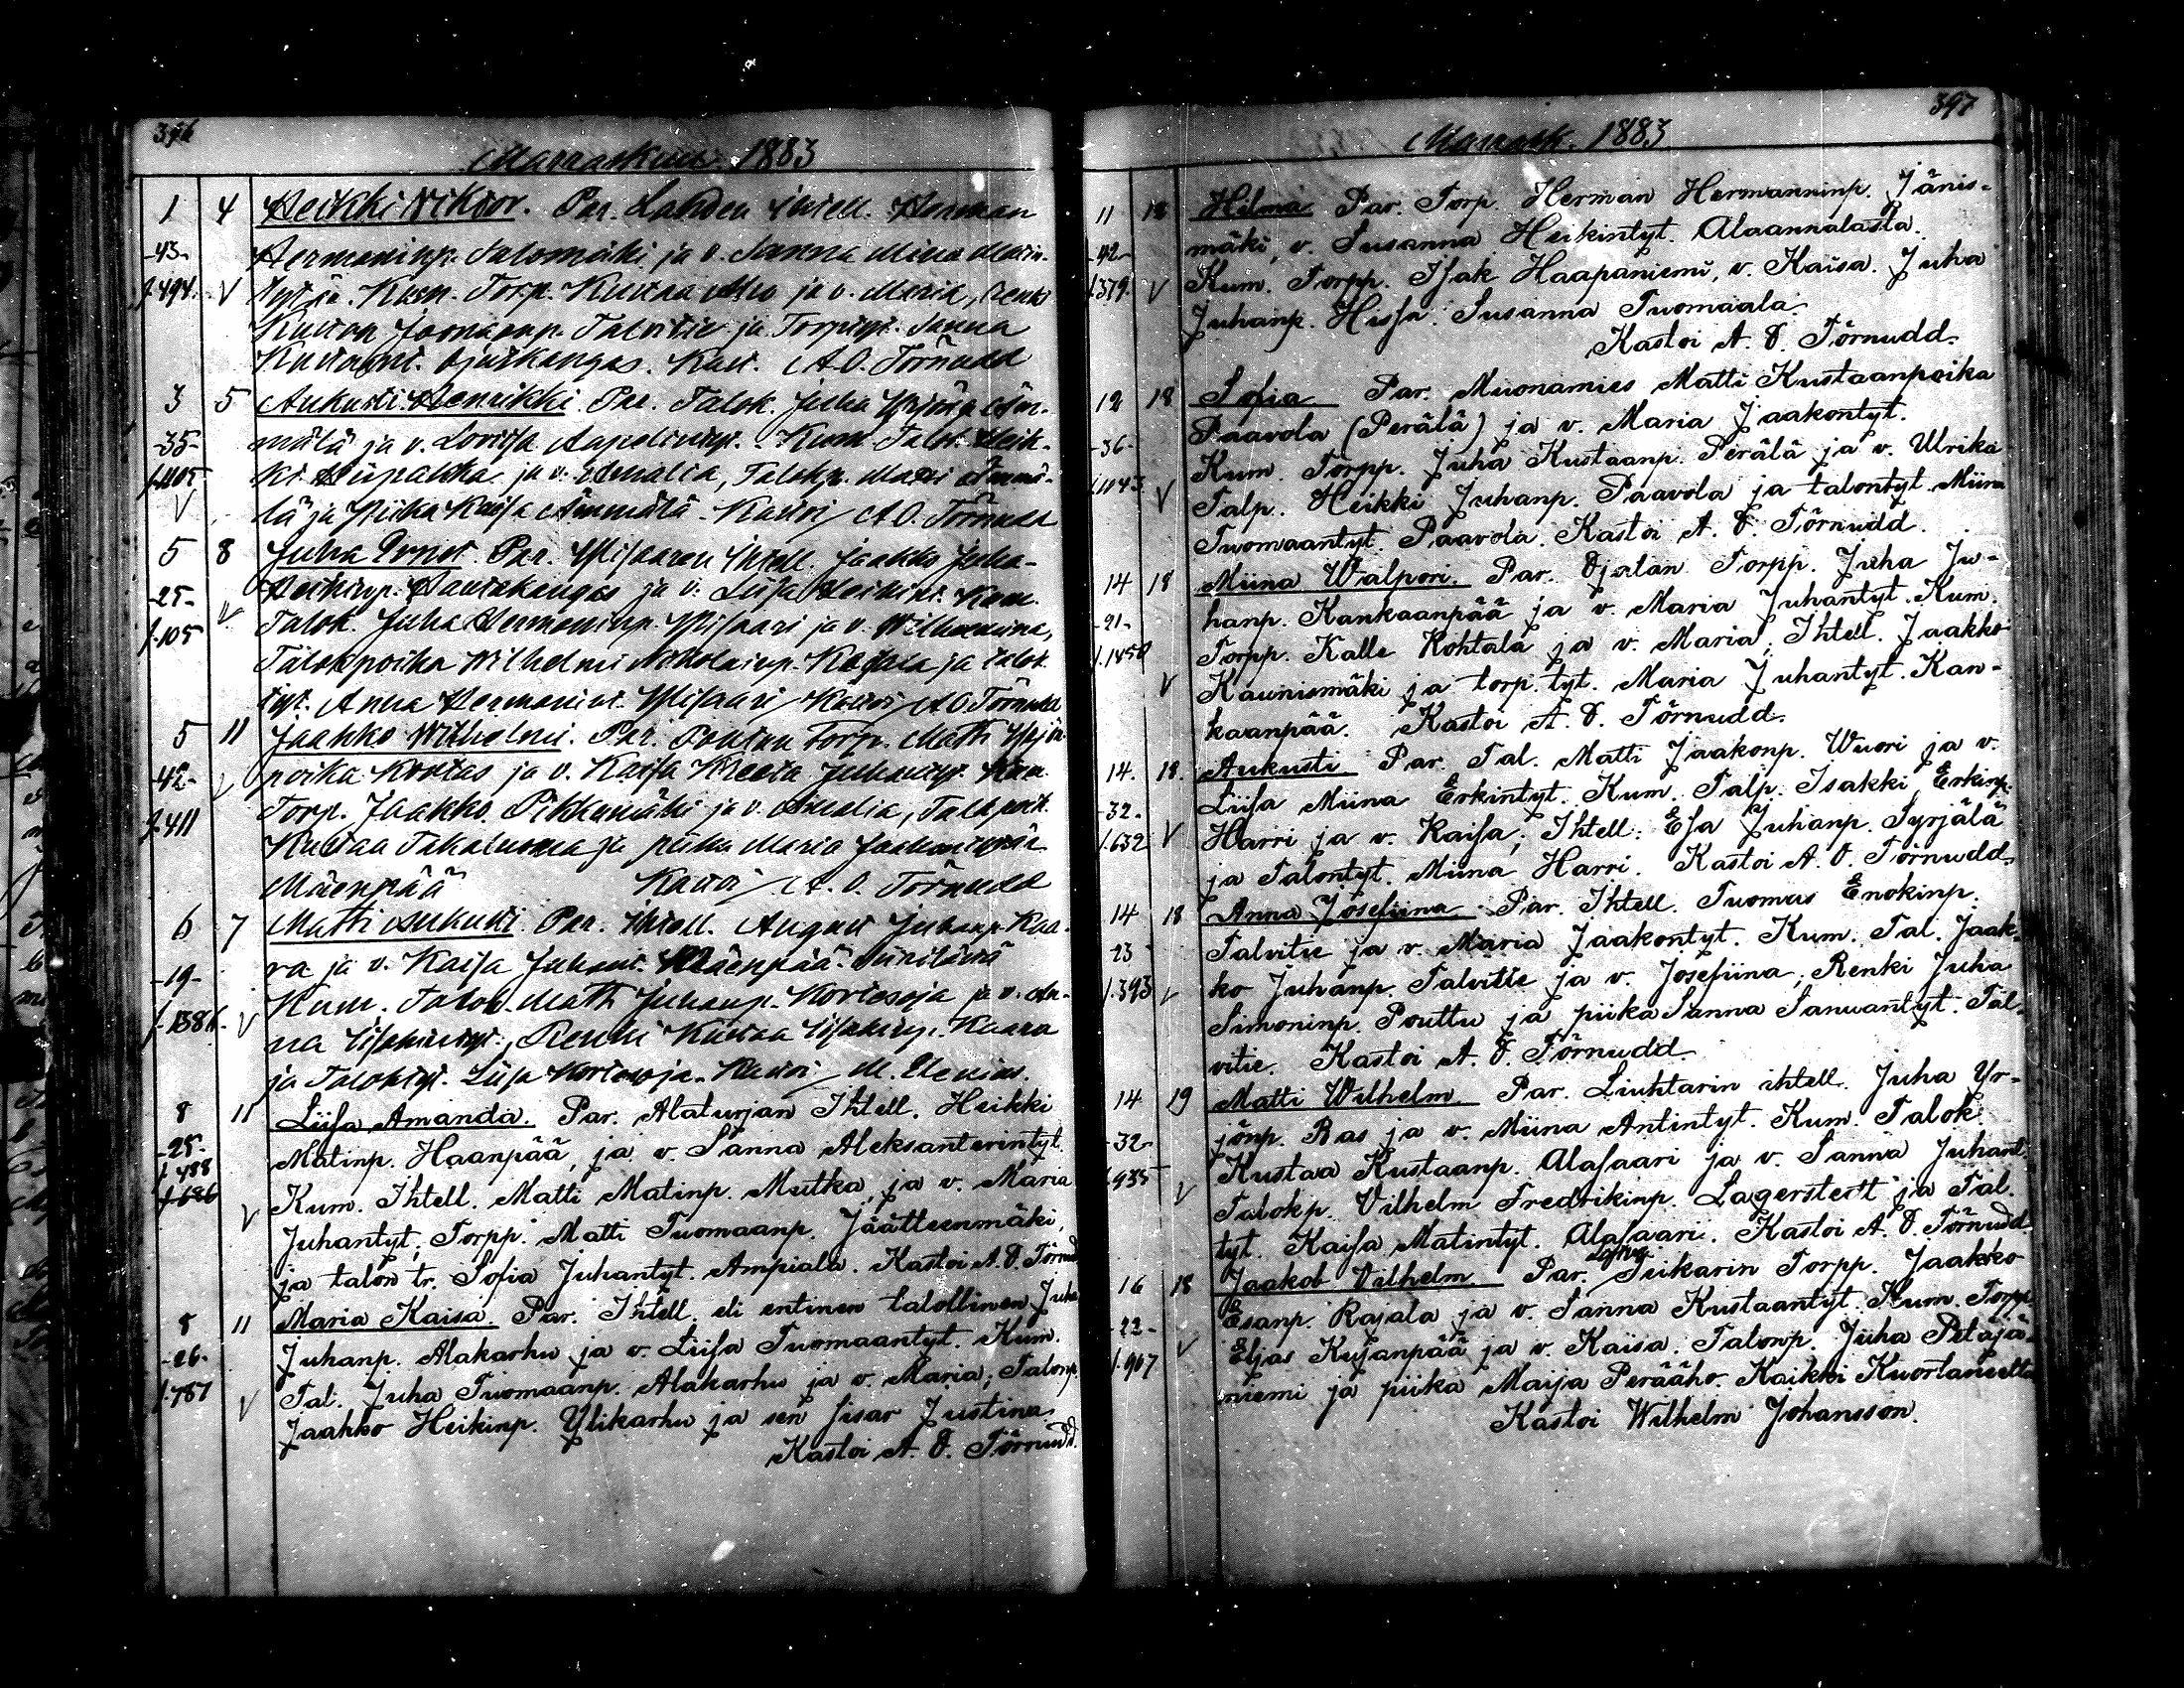 396
Marraskuu. 1883
1 4 Heikki Viktor. Par. Lahden ihtell. Herman
-43- Hermaninp. Salomäki ja v. Sanna Miina Matin-
f. 494. V tytär. Kum. Torp. Kustaa Aho ja v. Maria, Renki
Kustaa Joonaanp. Talvitie ja Torptyt. Sanna
Kustaant. Ojaskangas. Kast. A.O. Törnudd
3 5 Aukusti Henrikki. Par. Talok. Juha Yrjönp. Äm-
-35- mälä ja v. Lovisa Aapelintyt. Kum. Talok. Heik-
ki ja v. Amalia, Talokp. Matti Ämmä-
V lä ja Piika Kaisa Ämmälä. Kastoi A.O. Törnudd
5 8 Juha Ernst. Par. Ylisaaren Ihtell. Jaakko Juha-
-25- V Heikinp. Hautakangas ja v. Liisa Heikint. Kum.
f. 105 Talok. Juha Hermaninp. Ylisaari ja v. Wilhelmiina,
Talokpoika Wilhelmi Nikolainp. Rajala ja talok.
tyt. Anna Hermanint. Ylisaari. Kastoi A.O. Törnudd
5 11 Jaakko Wilhelmi. Par. Poutun Torp. Matti Yrjön-
-42- V poika Kootas ja v. Kaisa Kreeta Juhantyt. Kum.
f. 411 Torp. Jaakko Pikkumäki ja v. Amalia, Talok.poik.
Kustaa Takaluoma ja piika Maria Jaakontytär
Mäenpää Kastoi A. O. Törnudd
6 7 Matti Aukusti. Par. Ihtell. August Juhanp. Kaa-
-19- ra ja v. Kaisa Juhant. Mäenpää
f. 1386. V Kum. Talok. Matti Juhanp. Kortesoja ja v. An-
na Iisakintyt., Renki Kustaa Iisakinp. Kaara
ja Taloktyt. Liisa Kortesoja. Kastoi M. Elenius.
8 11 Liisa Amanda. Par. Alaturjan Ihtell. Heikki
-25- Matinp. Haanpää, ja v. Sanna Aleksanterintyt.
f. 488
f. 686 V Kum. Ihtell. Matti Matinp. Mutka, ja v. Maria
Juhantyt, Torpp. Matti Tuomaanp. Jäätteenmäki,
ja talon tr. Sofia Juhantyt. Ampiala. Kastoi A. O. Törnudd
8 11 Maria Kaisa. Par. Ihtell. eli entinen talollinen Juha
-26- Juhanp. Alakarhu ja v. Liisa Tuomaantyt. Kum.
f. 787 V Tal. Juha Tuomaanp. Alakarhu ja v. Maria; Talonp.
Jaakko Heikinp. Ylikarhu ja sen sisar Justina.
Kastoi A. O. Törnudd.
397
Marrask. 1883
11 18 Hilma Par. Torp. Herman Hermanninp. Jänis-
-42- mäki, v. Susanna Heikintyt. Alaannalasta.
f. 379. V Kum. Torpp. Isak Haapaniemi, v. Kaisa. Juha
Juhanp. Hissa. Susanna Tuomaala.
Kastoi A. O. Törnudd.
12 18 Sofia Par. Muonamies Matti Kustaanpoika
-36- Paavola (Perälä) ja v. Maria Jaakontyt.
f. 1043 V Kum. Torpp. Juha Kustaanp. Perälä ja v. Ulrika
Talp. Heikki Juhanp. Paavola ja talontyt. Miina
Tuomaantyt. Paavola. Kastoi A. O. Törnudd.
14 18 Miina Walpori. Par. Ojalan Torpp. Juha Ju-
-21- hanp. Kankaanpää ja v. Maria Juhantyt. Kum.
f. 1850 Torpp. Kalle Kohtala ja v. Maria; Ihtell. Jaakko
V Kaunismäki ja torp. tyt. Maria Juhantyt. Kan-
kaanpää. Kastoi A. O. Törnudd.
14. 18. Aukusti Par. Tal. Matti Jaakonp. Wuori ja v.
-32. Liisa Miina Erkintyt. Kum. Talp. Isakki Erkinp.
f. 632 V Harri ja v. Kaisa; Ihtell. Esa Juhanp. Syrjälä
ja Talontyt. Miina Harri. Kastoi A. O. Törnudd.
14 18 Anna Josefiina Par. Ihtell. Tuomas Enokinp.
23 Talvitie ja v. Maria Jaakontyt. Kum. Tal. Jaak-
f. 393 V ko Juhanp. Talvitie ja v. Josefiina; Renki Juha
Simoninp. Pouttu ja piika Sanna Sanuantyt. Tal-
vitie. Kastoi A. O. Törnudd.
14 19 Matti Wilhelm Par. Liuhtarin ihtell. Juha Yr-
-32- jönp. Ras ja v. Miina Antintyt. Kum. Talok.
f. 935 V Kustaa Kustaanp. Alasaari ja v. Sanna Juhant.
Talokp. Vilhelm Fredrikinp. Lagerstedt ja Tal.
tyt. Kaisa Matintyt. Alasaari. Kastoi A. O. Törnudd.
16 18 Jaakob Vilhelm Par. Torpp. Jaakko
-22- Esanp. Rajala ja v. Sanna Kustaantyt. Kum. Torpp.
f. 967 V Eljas Kujanpää ja v. Kaisa. Talonp. Juha Petäjä-
niemi ja piika Maija Perääho. Kaikki Kuortaneelta
Kastoi Wilhelm Johansson.